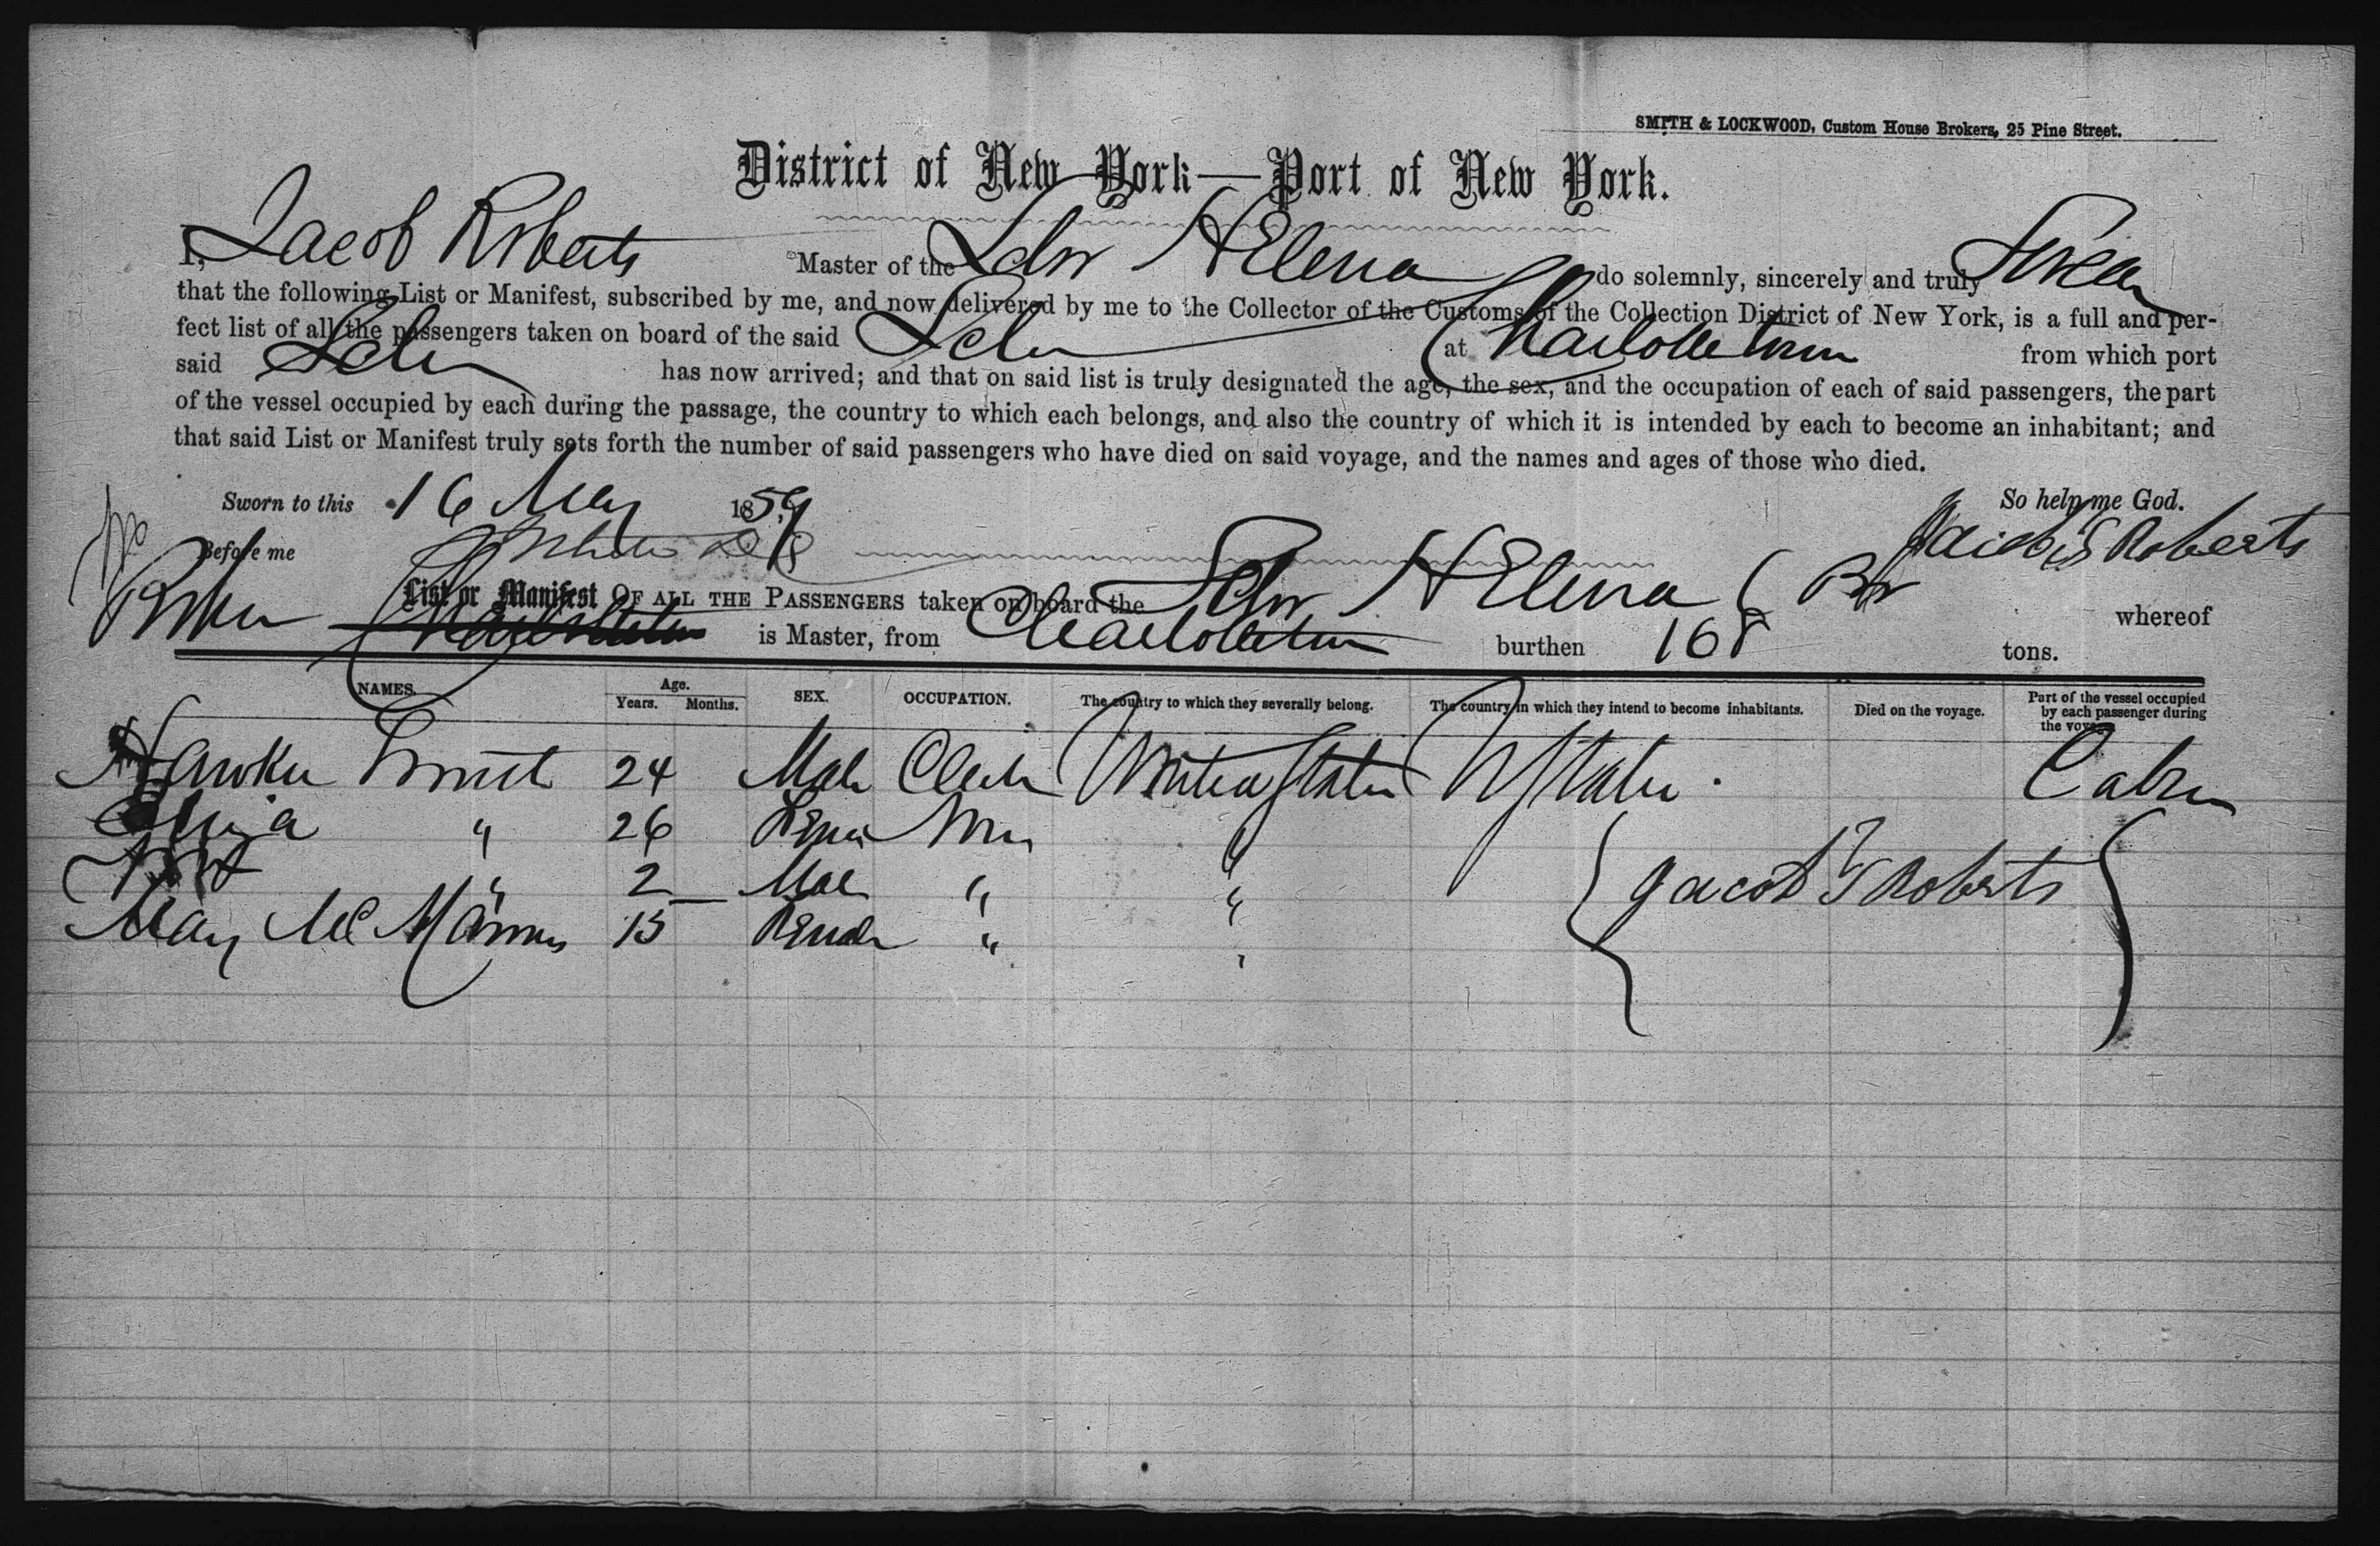 SMITH & LOCKWOOD, Custom House Brokers, 25 Pine Street.
District of New York—Port of New York.
I, Jacob Roberts Master of the Schr H Elena do solemnly, sincerely and truly Swear
that the following List or Manifest, subscribed by me, and now delivered by me to the Collector of the Customs of the Collection District of New York, is a full and per-
fect list of all the passengers taken on board of the said Schr at Charlottetown from which port
said Schr has now arrived; and that on said list is truly designated the age, the sex, and the occupation of each of said passengers, the part
of the vessel occupied by each during the passage, the country to which each belongs, and also the country of which it is intended by each to become an inhabitant; and
that said List or Manifest truly sets forth the number of said passengers who have died on said voyage, and the names and ages of those who died.
Sworn to this 16 May 1859 So help me God.
Before me Jacob S Roberts
List or Manifest OF ALL THE PASSENGERS taken on board the Schr H Elena ( Br whereof
is Master, from Charlottetown burthen 168 tons.
NAMES. Age. Years. Months. SEX. OCCUPATION. The country to which they severally belong. The country in which they intend to become inhabitants. Died on the voyage. Part of the vessel occupied by each passenger during the voyage
24 Male Clerk United States U States Cabin
Eliza " 26 Fem Mrs "
" 2 Male " "
Mary McManus 15 Female " "
Jacob S Roberts